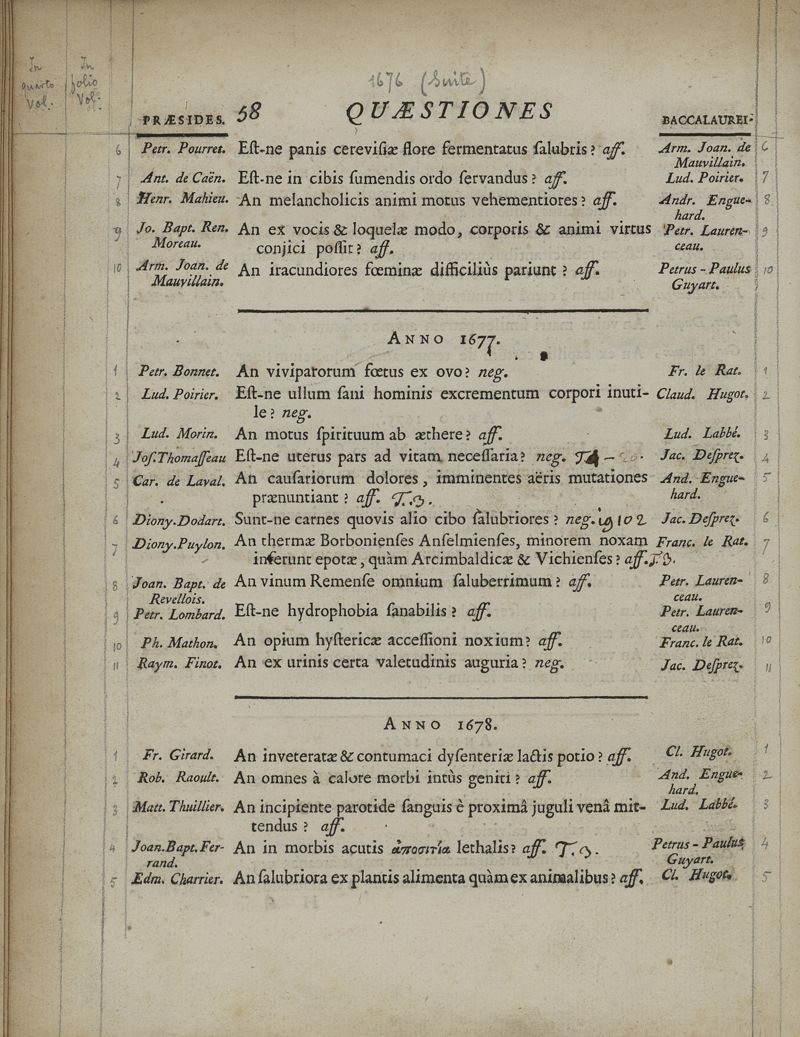 1676 (Suite)
In quarto Vol.
In folio Vol.
PRÆSIDES. 58 QUÆSTIONES BACCALAUREI.
6 Petr. Pourret. Eſt-ne panis cereviſiæ flore fermentatus ſalubris? aff. Arm. Joan. de Mauvillain. 6
7 Ant. de Caën. Eſt-ne in cibis ſumendis ordo ſervandus? aff. Lud. Poirier. 7
8 Henr. Mahieu. An melancholicis animi motus vehementiores? aff. Andr. Engue-hard. 8
9 Jo. Bapt. Ren. Moreau. An ex vocis & loquelæ modo, corporis & animi virtus
conjici poſſit? aff. Petr. Lauren-ceau. 9
10 Arm. Joan. de Mauvillain. An iracundiores fœminæ difficiliùs pariunt? aff. Petrus-Paulus Guyart. 10
ANNO 1677.
1 Petr. Bonnet. An viviparorum fœtus ex ovo? neg. Fr. le Rat. 1
2 Lud. Poirier. Eſt-ne ullum ſani hominis excrementum corpori inuti-
le? neg. Claud. Hugot. 2
3 Lud. Morin. An motus ſpirituum ab æthere? aff. Lud. Labbé. 3
4 Joſ. Thomaſſeau Eſt-ne uterus pars ad vitam neceſſaria? neg. Jac. Deſprez. 4
5 Car. de Laval. An cauſariorum dolores, imminentes aëris mutationes
prænuntiant? aff. And. Engue-hard. 5
6 Diony. Dodart. Sunt-ne carnes quovis alio cibo ſalubriores? neg. Jac. Deſprez. 6
7 Diony. Puylon. An thermæ Borbonienſes Anſelmienſes, minorem noxam
inferunt epotæ, quàm Arcimbaldicæ & Vichienſes? aff. Franc. le Rat. 7
8 Joan. Bapt. de Revellois. An vinum Remenſe omnium ſaluberrimum? aff. Petr. Lauren-ceau. 8
9 Petr. Lombard. Eſt-ne hydrophobia ſanabilis? aff. Petr. Lauren-ceau. 9
10 Ph. Mathon. An opium hyſtericæ acceſſioni noxium? aff. Franc. le Rat. 10
11 Raym. Finot. An ex urinis certa valetudinis auguria? neg. Jac. Deſprez. 11
ANNO 1678.
1 Fr. Girard. An inveteratæ & contumaci dyſenteriæ lactis potio? aff. Cl. Hugot. 1
2 Rob. Raoult. An omnes à calore morbi intùs geniti? aff. And. Engue-hard. 2
3 Matt. Thuillier. An incipiente parotide ſanguis è proximâ juguli venâ mit-
tendus? aff. Lud. Labbé. 3
4 Joan. Bapt. Fer-rand. An in morbis acutis ἀποσιτία lethalis? aff. Petrus-Paulus Guyart. 4
5 Edm. Charrier. An ſalubriora ex plantis alimenta quàm ex animalibus? aff. Cl. Hugot. 5